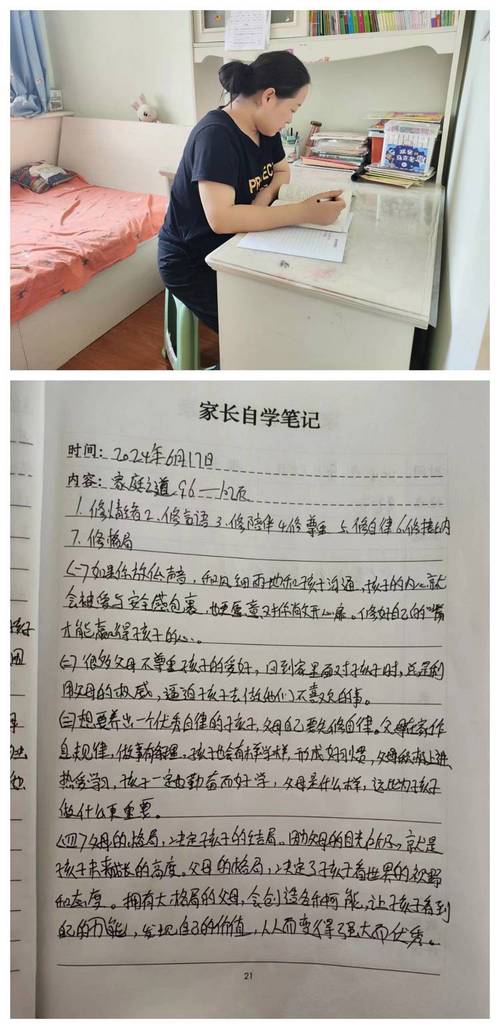 PROJECT
家长自学笔记
时间：2024年6月17日
内容：家庭之道 96—102页
1.修情绪 2.修言语 3.修陪伴 4.修尊重 5.修自律 6.修接纳
7.修格局
(一)如果你放低声音，和风细雨地和孩子沟通，孩子的内心就
会被爱与安全感包裹，也更愿意对你敞开心扉。修好自己的嘴
才能赢得孩子的心。
(二)很多父母不尊重孩子的爱好，回到家里面对孩子时，总是利
用父母的权威，逼迫孩子去做他们不喜欢的事。
(三)想要养出一个优秀自律的孩子，父母自己要先修自律。父母在家作
息规律，做事有条理，孩子也会有样学样，形成好习惯，父母积极上进
热爱学习，孩子一定也勤奋而好学，父母是什么样，远比为孩子
做什么更重要。
(四)父母的格局，决定孩子的结局。因为父母的目光所及，就是
孩子未来成长的高度。父母的格局，决定了孩子看世界的视野
和态度。拥有大格局的父母，会创造各种可能，让孩子看到
自己的可能，发现自己的价值，从而变得强大而优秀。
21